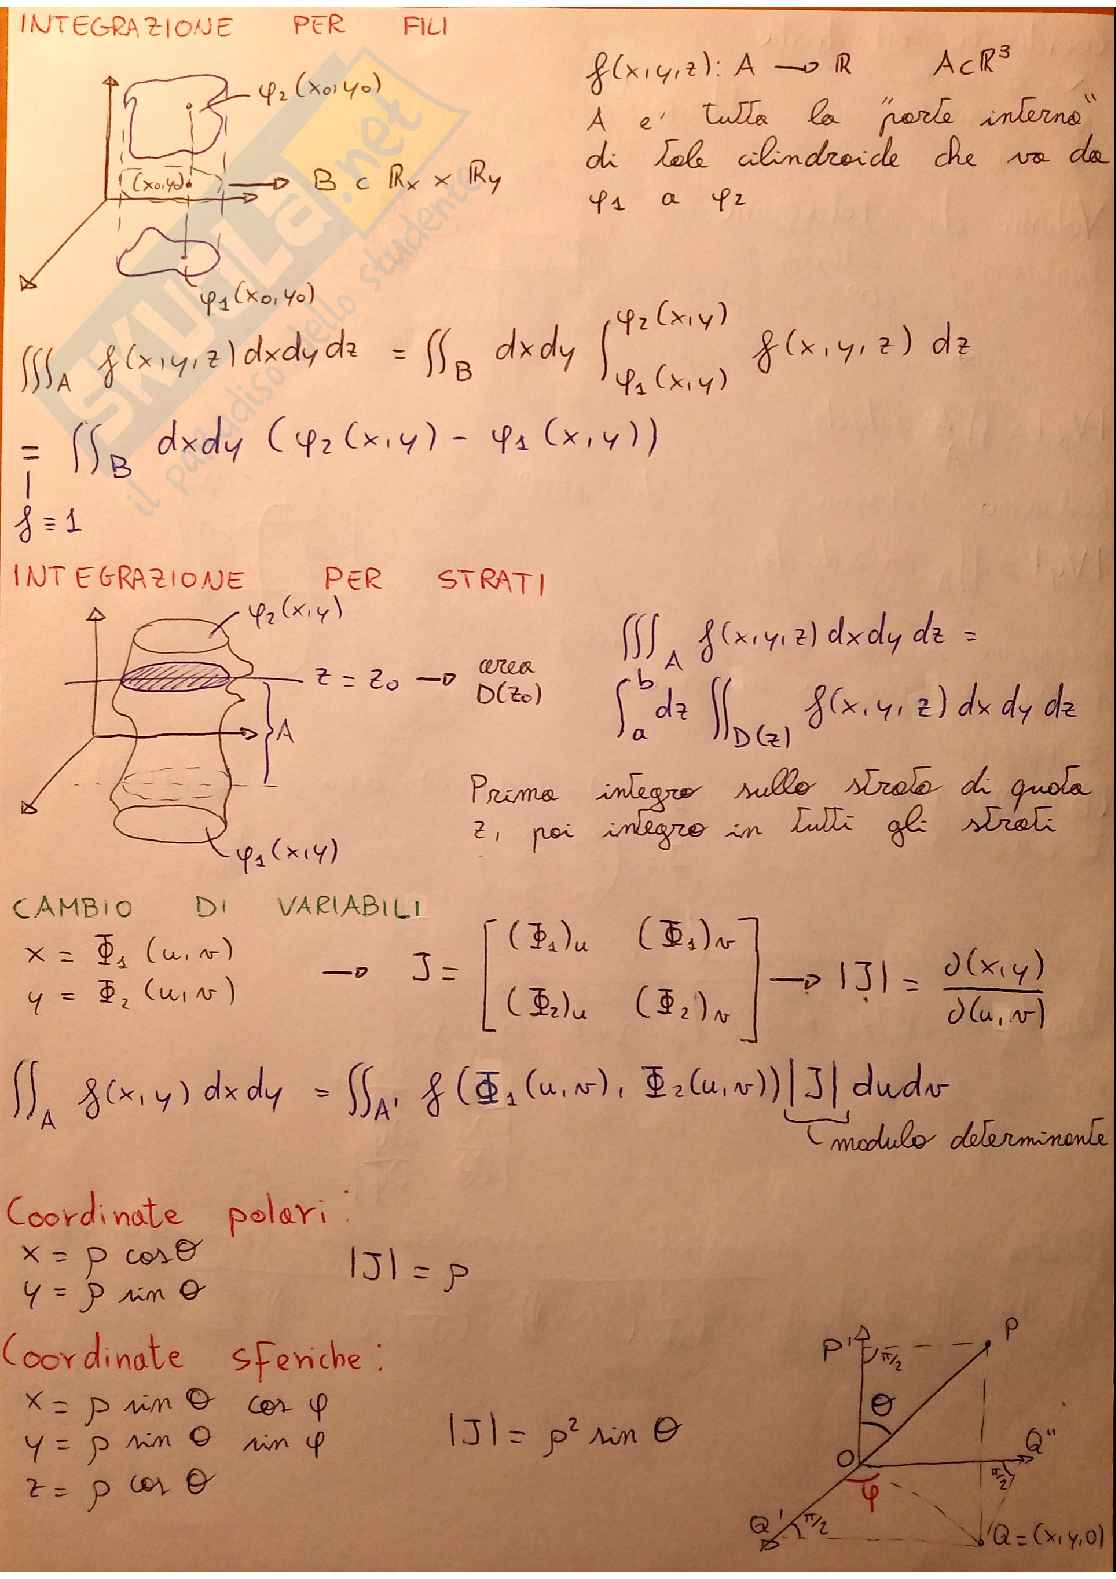 INTEGRAZIONE PER FILI
φ2(x0,y0)
f(x,y,z): A → ℝ A⊂ℝ³
A e' tutta la "parte interna"
di tale cilindroide che va da
φ1 a φ2
(x0,y0)
B ⊂ ℝx × ℝy
φ1(x0,y0)
∭A f(x,y,z) dxdydz = ∬B dxdy ∫φ1(x,y)^φ2(x,y) f(x,y,z) dz
= ∬B dxdy (φ2(x,y) - φ1(x,y))
f ≡ 1
INTEGRAZIONE PER STRATI
φ2(x,y)
z = z0 → area D(z0)
A
φ1(x,y)
∭A f(x,y,z) dxdydz =
∫a^b dz ∬D(z) f(x,y,z) dxdydz
Prima integro sullo strato di quota
z, poi integro in tutti gli strati
CAMBIO DI VARIABILI
x = Φ1 (u,v)
y = Φ2 (u,v)
→ J = [(Φ1)u (Φ1)v
(Φ2)u (Φ2)v] → |J| = ∂(x,y)/∂(u,v)
∬A f(x,y) dxdy = ∬A' f(Φ1(u,v), Φ2(u,v)) |J| dudv
modulo determinante
Coordinate polari:
x = ρ cosθ
y = ρ sin θ
|J| = ρ
Coordinate sferiche:
x = ρ sin θ cos φ
y = ρ sin θ sin φ
z = ρ cos θ
|J| = ρ² sin θ
P'
π/2
P
θ
O
φ
Q''
π/2
Q'
π/2
Q = (x,y,0)
SKUOLA.net
il paradiso dello studente